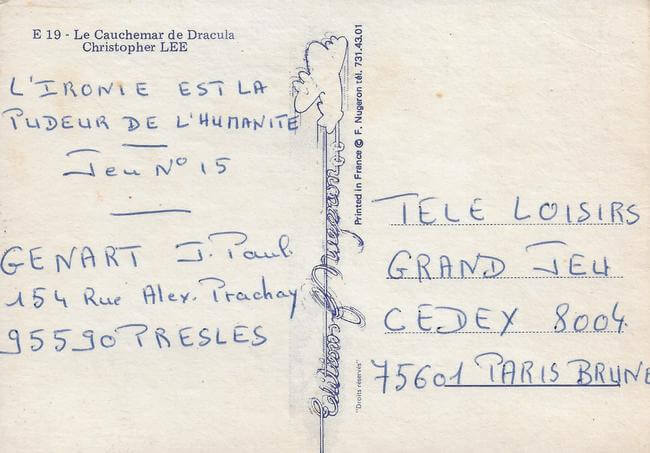 E 19 - Le Cauchemar de Dracula
Christopher LEE
L'IRONIE EST LA
PUDEUR DE L'HUMANITE
Jeu N° 15
GENART J. Paul
154 Rue Alex. Prachay
95590 PRESLES
Editions F. Nugeron
"Droits réservés"
Printed in France © F. Nugeron tél. 731.43.01
TELE LOISIRS
GRAND JEU
CEDEX 8004
75601 PARIS BRUNE